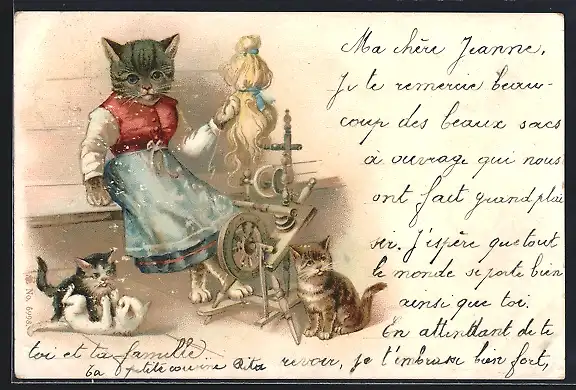 Ma chère Jeanne,
Je te remercie beau-
coup des beaux sacs
à ouvrage qui nous
ont fait grand plai
sir. J'espère que tout
le monde se porte bien
ainsi que toi.
En attendant de te
revoir, je t'embrasse bien fort,
toi et ta famille.
ta petite cousine Rita
No. 699